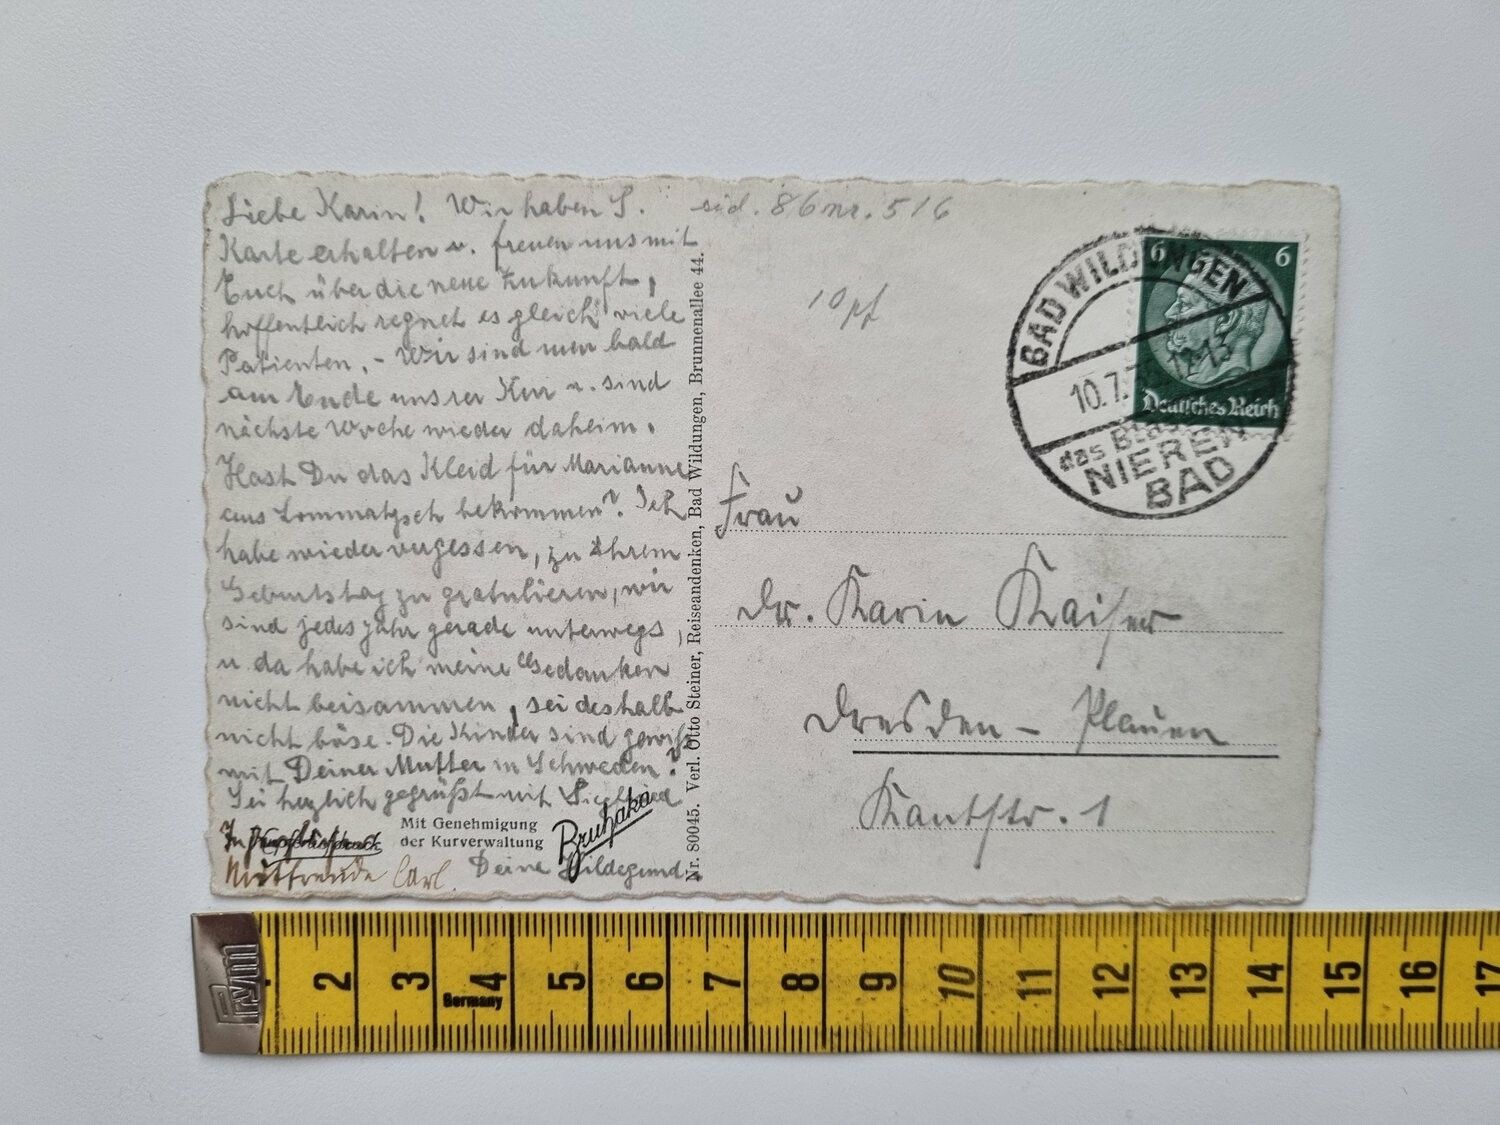 Liebe Karin! Wir haben D.
Karte erhalten u. freuen uns mit
Euch über die neue Zukunft,
hoffentlich regnet es gleich viele
Patienten. - Wir sind nun bald
am Ende unsrer Kur u. sind
nächste Woche wieder daheim.
Hast Du das Kleid für Marianne
aus Lommatzsch bekommen? Ich
habe wieder vergessen, zu Ihrem
Geburtstag zu gratulieren, wir
sind jedes Jahr gerade unterwegs,
u. da habe ich meine Gedanken
nicht beisammen, sei deshalb
nicht böse. Die Kinder sind gewiß
mit Deiner Mutter in Schweden?
Sei herzlich gegrüßt mit Siegfried
Deine Hildegund.
In
Mitfreude Carl.
Mit Genehmigung
der Kurverwaltung
Bruhaka
Nr. 80045. Verl. Otto Steiner, Reiseandenken, Bad Wildungen, Brunnenallee 44.
sid. 86 nr. 516
10 pf
BAD WILDUNGEN
10.7.
13
das
NIEREN
BAD
6 6
Deutsches Reich
Frau
Dr. Karin Kaiser
Dresden - Plauen
Kantstr. 1
Prym
2 3 4 5 6 7 8 9 10 11 12 13 14 15 16 17
Germany